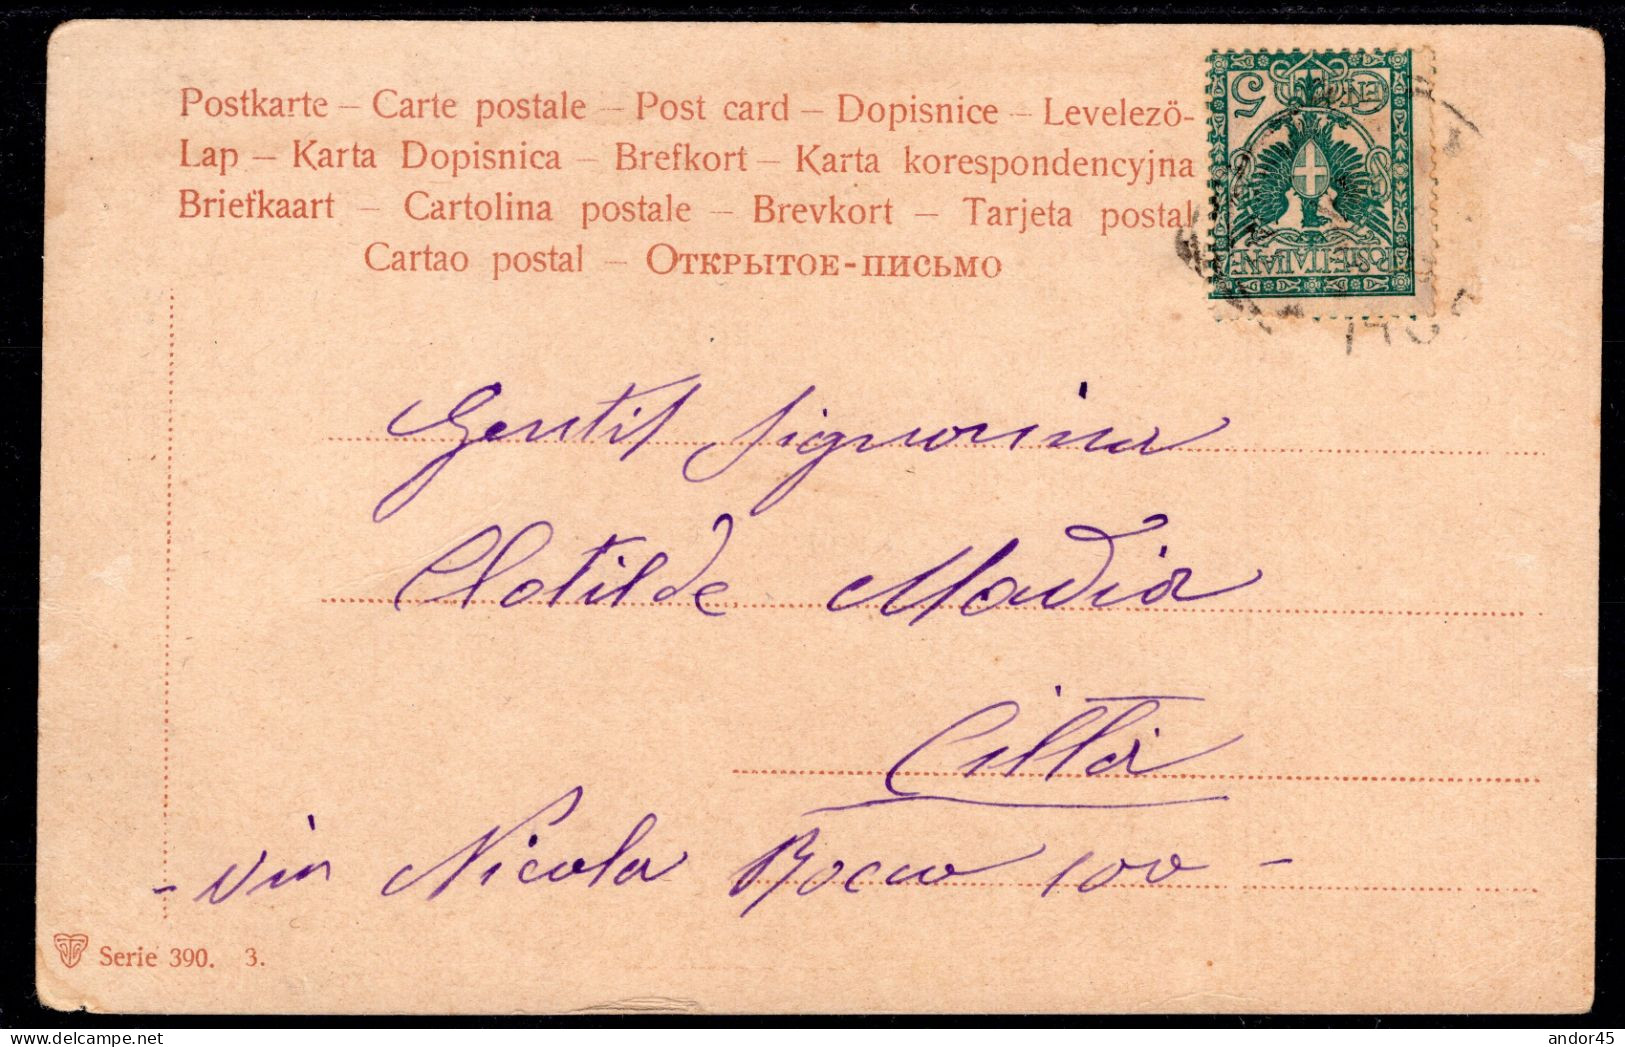 Postkarte – Carte postale – Post card – Dopisnice – Levelezö-
Lap – Karta Dopisnica – Brefkort – Karta korespondencyjna
Briefkaart – Cartolina postale – Brevkort – Tarjeta postal
Cartao postal – Открытое-письмо
5 CEN
POSTE ITALIANE
Gentil Signorina
Clotilde Madia
Città
- via Nicola Rocco 100 -
Serie 390. 3.
andor45